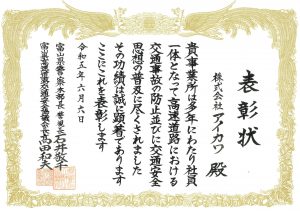 表彰状
株式会社アイカワ 殿
貴事業所は多年にわたり社員
一体となって高速道路における
交通事故の防止並びに交通安全
思想の普及に尽くされました
その功績は誠に顕著であります
ここにこれを表彰します
令和五年六月六日
富山県警察本部長 警視長 石井敬千
富山県高速道路交通安全協議会長 高田和夫